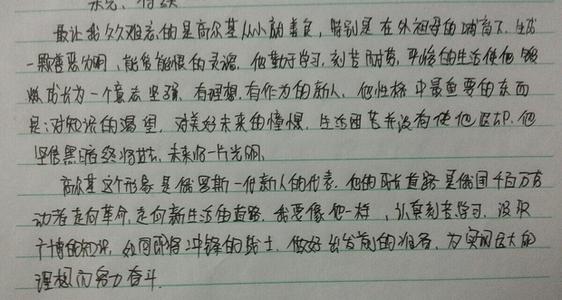 最让我久久难忘的是高尔基从小就善良，特别是在外祖母的哺育下，生成
一颗善恶分明，能爱能恨的灵魂。他勤于学习，刻苦耐劳，平恰的生活使他锻
炼成长为一个意志坚强，有理想，有作力的新人。他性格中最重要的东西
是：对知识的渴望，对美好未来的憧憬，生活困苦并没有使他屈服。他
坚信黑暗终将过去，未来将一片光明。
高尔基这个形象是俄罗斯一代新人的代表，他的成长道路是俄国千百万劳
动者走向革命，走向新生活的道路，我要像他一样，认真刻苦学习，汲取
广博的知识，如同即将冲锋的战士，做好出发前的准备，为实现远大的
理想而努力奋斗.